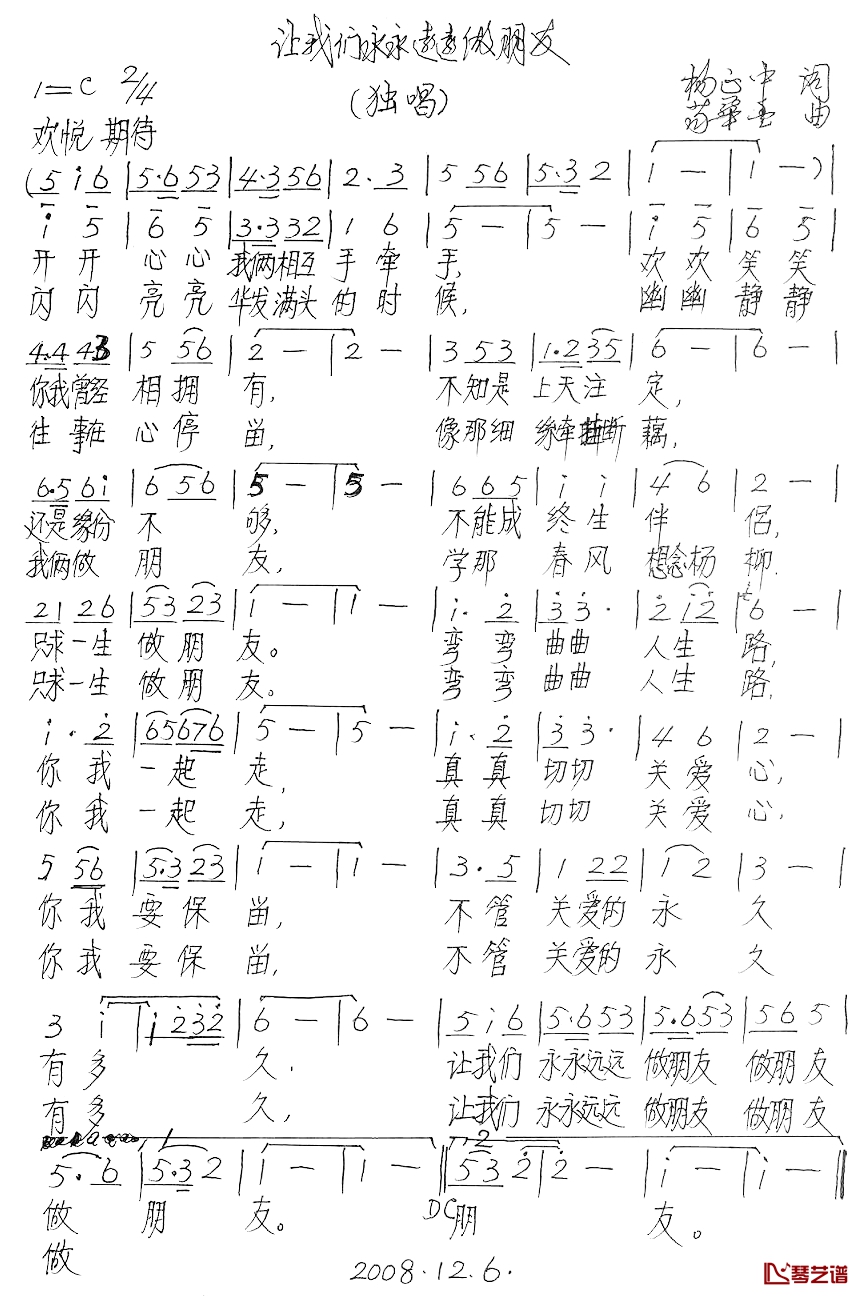 让我们永永遠遠做朋友
1=C 2/4
(独唱)
杨正中 词
曲
欢悦 期待
(5 i 6 | 5·6 53 | 4·3 56 | 2· 3 | 5 56 | 5·3 2 | i — | i —)|
i 5 | 6 5 | 3·3 32 | 1 6 | 5 — | 5 — | i 5 | 6 5 |
开 开 心 心 我俩相互 手 牵 手, 欢 欢 笑 笑
闪 闪 亮 亮 华发满头 的 时 候, 幽 幽 静 静
4·4 43 | 5 56 | 2 — | 2 — | 3 53 | 1·2 35 | 6 — | 6 — |
你我曾经 相 拥 有, 不知是 上天注 定,
往 事在 心 停 畄, 像那细 丝牵 断 藕,
6·5 6i | 6 56 | 5 — | 5 — | 6 65 | i i | 4 6 | 2 — |
还是缘份 不 够, 不能成 终 生 伴 侣,
我俩做 朋 友, 学那 春 风 想念杨 柳.
21 26 | 53 23 | i — | i — | i· 2 | 3 3· | 2 i2 | 6 — |
只求一生 做 朋 友。 弯 弯 曲曲 人生 路,
只求一生 做 朋 友。 弯 弯 曲曲 人生 路,
i· 2 | 65 676 | 5 — | 5 — | i· 2 | 3 3· | 4 6 | 2 — |
你 我 一 起 走, 真 真 切切 关 爱 心,
你 我 一 起 走, 真 真 切切 关 爱 心,
5 56 | 5·3 23 | i — | i — | 3· 5 | 1 22 | i 2 | 3 — |
你 我 要 保 畄, 不 管 关爱的 永 久
你 我 要 保 畄, 不 管 关爱的 永 久
3 i | i 232 | 6 — | 6 — | 5 i 6 | 5·6 53 | 5·6 53 | 56 5 |
有 多 久. 让我们 永永远远 做朋友 做朋友
有 多 久, 让我们 永永远远 做朋友 做朋友
1 2
5· 6 | 5·3 2 | i — | i — || 53 2 | 2 — | i — | i — ||
做 朋 友。 DC 朋 友。
做
2008.12.6.
琴艺谱